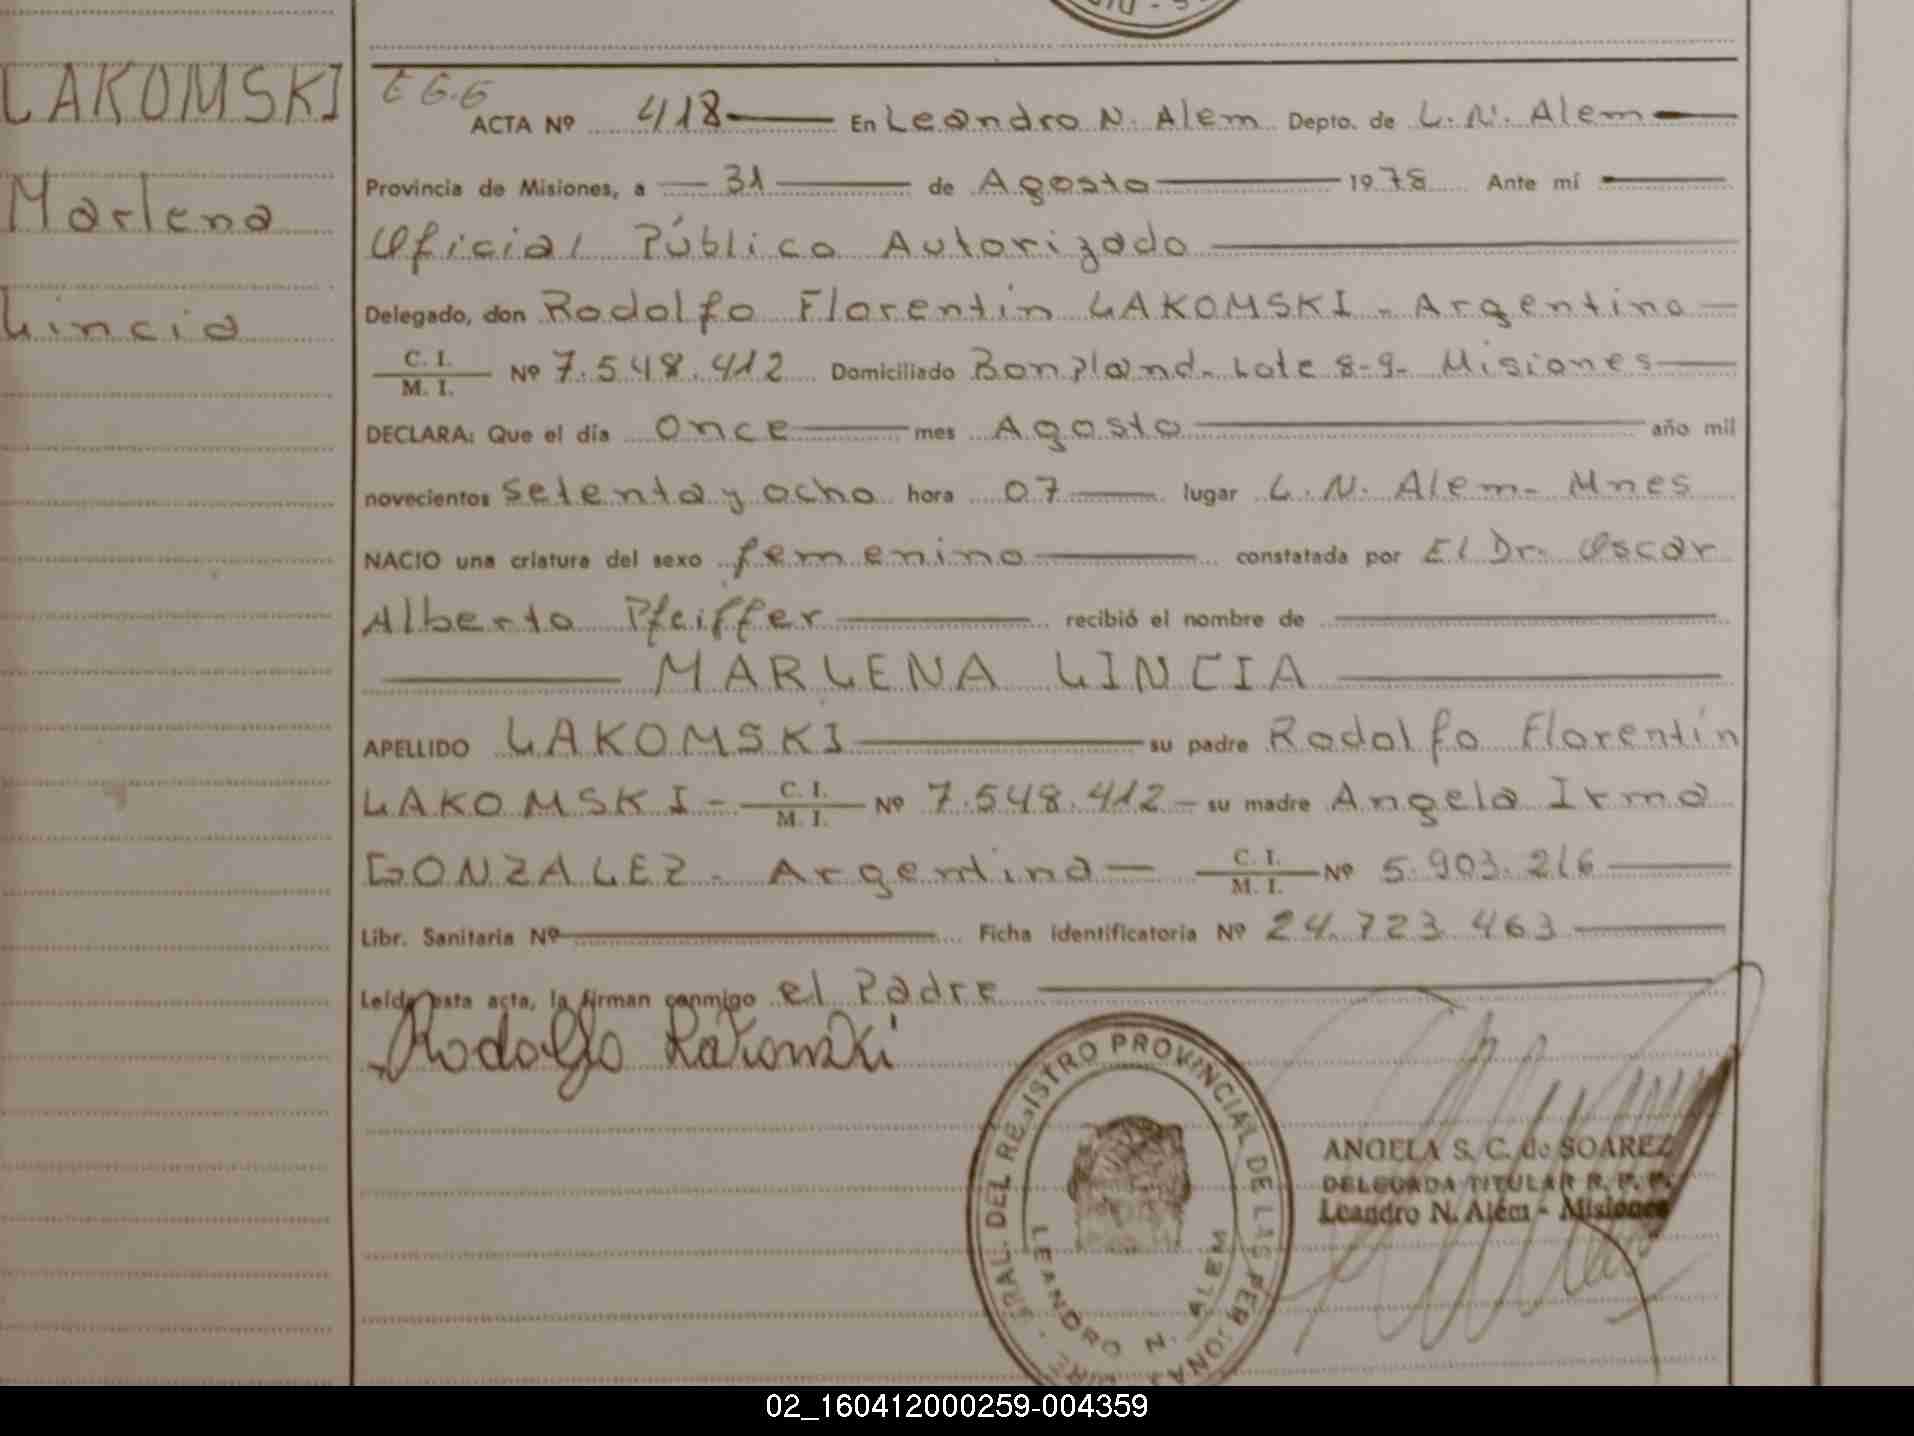 LAKOMSKI
Marlena
Lincia
E G.G
ACTA Nº 418 En Leandro N. Alem Depto. de L. N. Alem
Provincia de Misiones, a 31 de Agosto 1978 Ante mí
Oficial Público Autorizado
Delegado, don Rodolfo Florentín LAKOMSKI - Argentino
C. I.
M. I. Nº 7.548.412 Domiciliado Bonpland - Lote 8-9- Misiones
DECLARA: Que el día once mes Agosto año mil
novecientos setenta y ocho hora 07 lugar L. N. Alem - Mnes
NACIO una criatura del sexo femenino constatada por El Dr. Oscar
Alberto Pfeiffer recibió el nombre de
MARLENA LINCIA
APELLIDO LAKOMSKI su padre Rodolfo Florentín
LAKOMSKI - C. I. M. I. Nº 7.548.412 - su madre Angela Irma
GONZALEZ - Argentina C. I. M. I. Nº 5.903.216
Libr. Sanitaria Nº Ficha identificatoria Nº 24.723.463
Leída esta acta, la firman conmigo el Padre
Rodolfo
GRAL. DEL REGISTRO PROVINCIAL DE LAS PERSONAS
LEANDRO N. ALEM
ANGELA S. C. de SOAREZ
DELEGADA TITULAR R. P. P.
Leandro N. Alem - Misiones
02_160412000259-004359